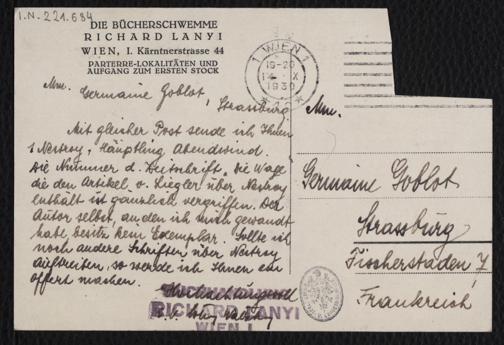 I.N. 221.684
DIE BÜCHERSCHWEMME
RICHARD LANYI
WIEN, I. Kärntnerstrasse 44
PARTERRE-LOKALITÄTEN UND
AUFGANG ZUM ERSTEN STOCK
1 WIEN 1
19-20
IX
1930
Mme. Germaine Goblot, Strassburg.
Mit gleicher Post sende ich Ihnen
1 Nestroy, Häuptling Abendwind.
Die Nummer d. Zeitschrift, Die Wage
die den Artikel v. Liegler über Nestroy
enthält ist gänzlich vergriffen. Der
Autor selbst, an den ich mich gewandt
habe, besitzt kein Exemplar. Sollte ich
noch andere Schriften über Nestroy
auftreiben, so werde ich Ihnen ein
offert machen.
Hochachtungsvoll
RICHARD LANYI
WIEN I.
Mme.
Germaine Goblot
Strassburg
Fischerstaden 7
Frankreich